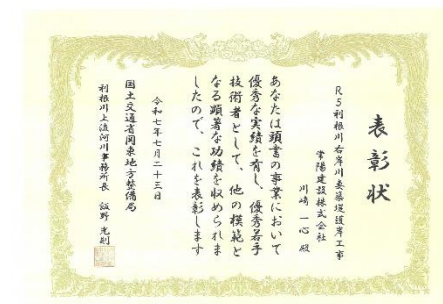 表彰状
R5利根川右岸川妻築堤護岸工事
常陽建設株式会社
川崎 一心 殿
あなたは頭書の事業において
優秀な実績を有し、優秀若手
技術者として、他の模範と
なる顕著な功績を収められま
したので、これを表彰します
令和七年七月二十三日
国土交通省関東地方整備局
利根川上流河川事務所長 飯野 光則